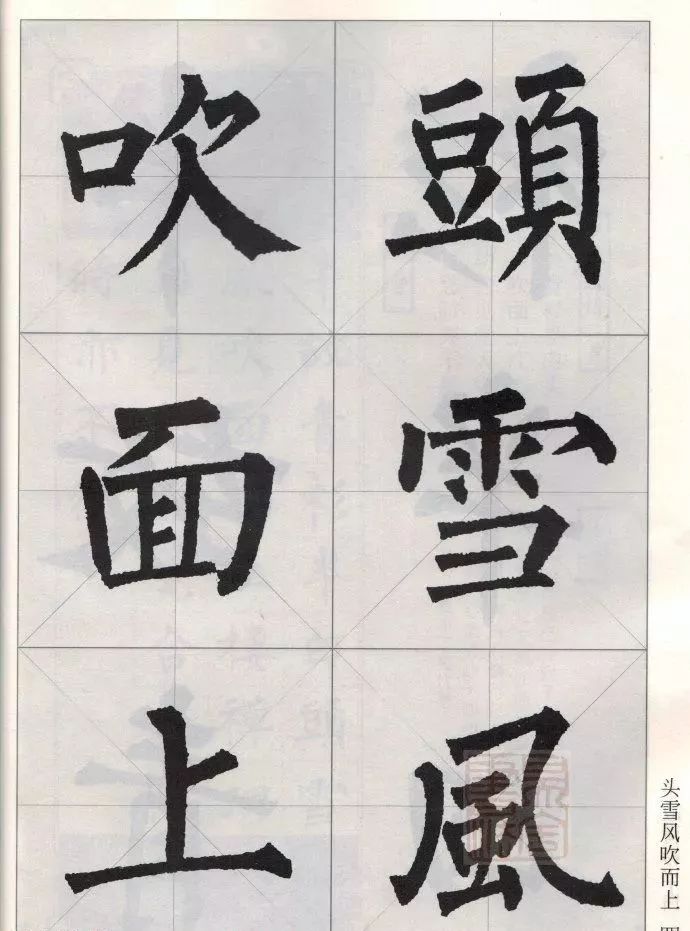 頭雪風
吹面上
头雪风吹而上 四